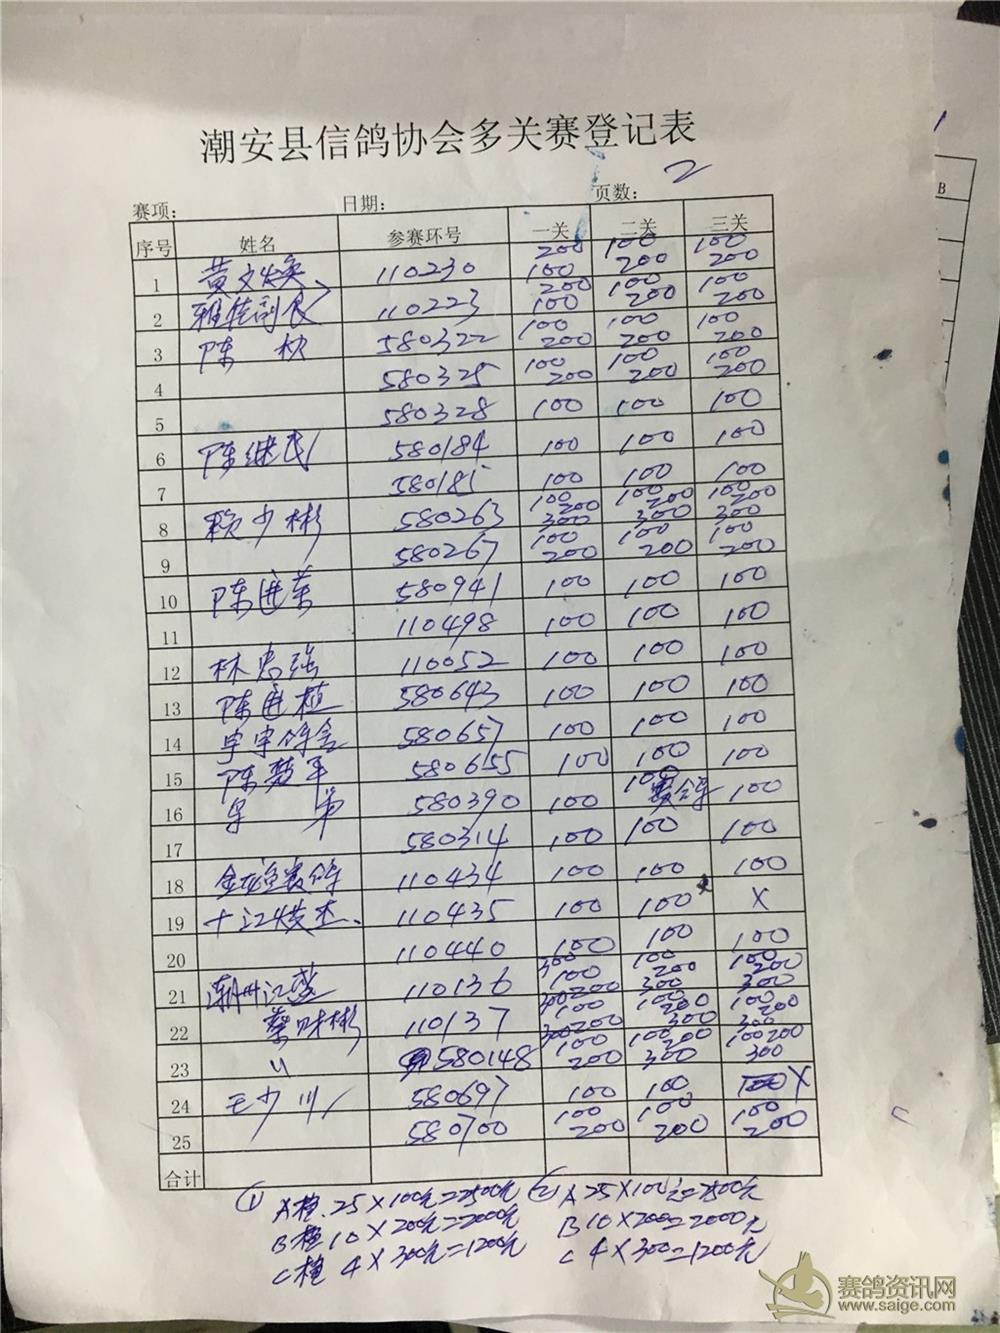 潮安县信鸽协会多关赛登记表
2
赛项: 日期: 页数:
序号 姓名 参赛环号 一关 二关 三关
1 黄文焕 110230 100 200 100 200 100 200
2 雅佳副食 110223 100 200 100 200 100 200
3 陈 580322 100 200 100 200 100 200
4 580325 100 200 100 200 100 200
5 580328 100 100 100
6 陈继民 580184 100 100 100
7 580181 100 100 100
8 赖少彬 580263 100 200 300 100 200 300 100 200 300
9 580267 100 200 100 200 100 200
10 陈进荣 580941 100 100 100
11 110498 100 100 100
12 林忠强 110052 100 100 100
13 陈进植 580643 100 100 100
14 宇宇鸽舍 580657 100 100 100
15 陈楚军 580655 100 100 100
16 580390 100 100 100
17 580314 100 100 100
18 金龙 赛鸽 110434 100 100 100
19 江 杰 110435 100 100 X
20 110440 100 100 100
21 潮州江 110136 300 100 200 100 200 300 100 200 300
22 蔡财彬 110137 300 100 200 100 200 300 100 200 300
23 〃 580148 300 100 200 100 200 300 100 200 300
24 王少川 580697 100 100 100 X
25 580700 100 200 100 200 100 200
合计
(1) A档.25×100元=2500元 (2) A 25×100元=2500元
B档 10×200元=2000元 B 10×200=2000元
C档 4×300元=1200元 C 4×300=1200元
B
赛鸽资讯网
www.saige.com